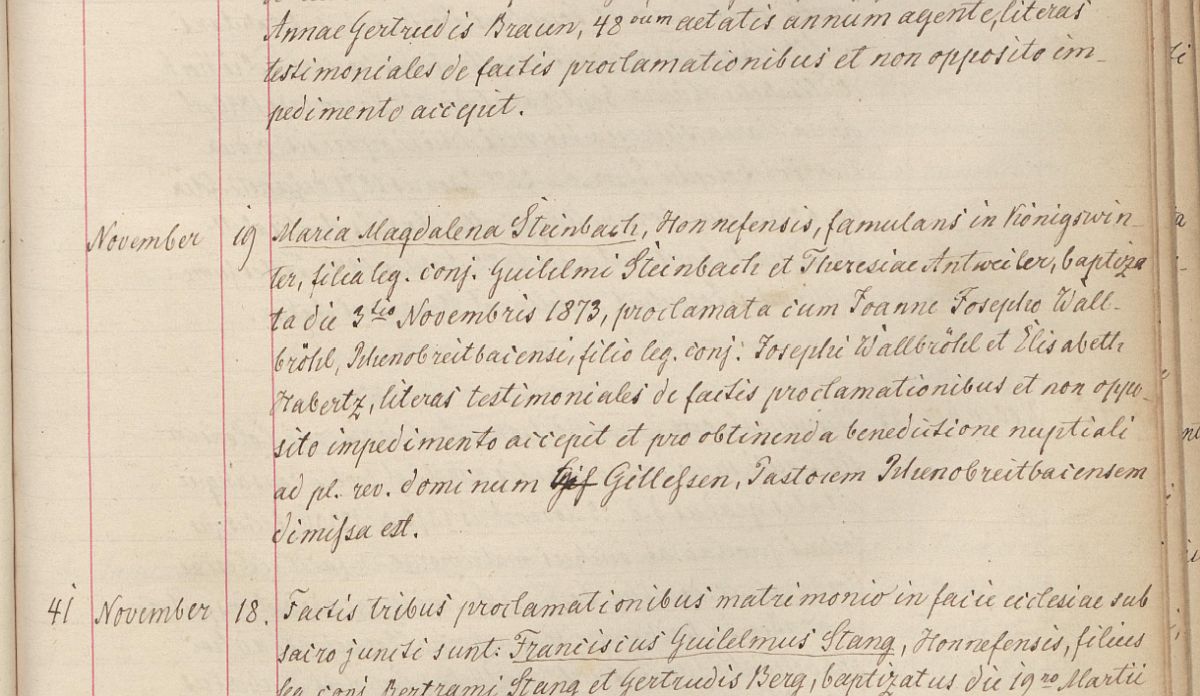 Annae Gertrudis Braun, 48oum aetatis annum agente, literas
testimoniales de factis proclamationibus et non opposito im-
pedimento accepit.
November 19 Maria Magdalena Steinbach, Honnefensis, famulans in Königswin-
ter, filia leg. conj. Guilelmi Steinbach et Theresiae Antweiler, baptiza
ta die 3tio Novembris 1873, proclamata cum Joanne Josepho Wall-
bröhl, Rhenobreitbacensi, filio leg. conj. Josephi Wallbröhl et Elisabeth
Habertz, literas testimoniales de factis proclamationibus et non oppo-
sito impedimento accepit et pro obtinenda benedictione nuptiali
ad pl. rev. dominum Gillessen, Pastorem Rhenobreitbacensem
dimissa est.
41 November 18. Factis tribus proclamationibus matrimonio in facie ecclesiae sub
sacro juncti sunt: Franciscus Guilelmus Stang, Honnefensis, filius
leg. conj. Bertrami Stang et Gertrudis Berg, baptizatus die 19ro Martii